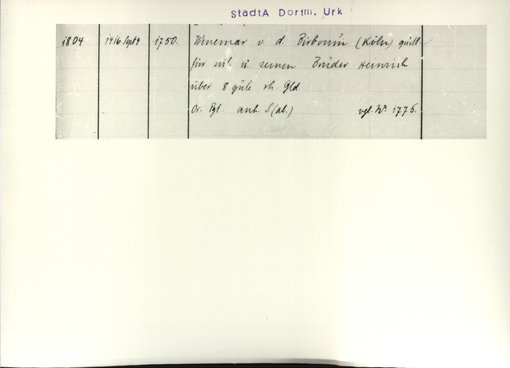 StadtA Dortm. Urk
1804 1416 Sept 9 1750. Wenemar v. d. Birboum (Köln) quitt
für sich u seinen Bruder Heinrich
über 8 gute rh. Gld
Or. Pgt anh. S (ab.) vgl Nr. 1775.